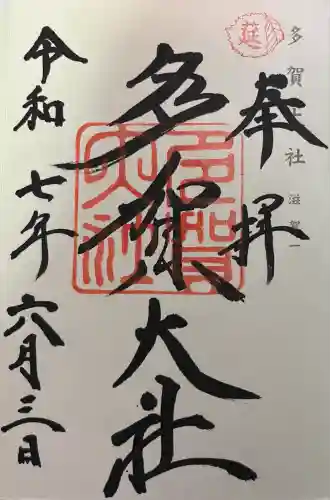 多賀大社 滋賀一
奉拝
多賀大社
令和七年六月三日
多賀大社
延